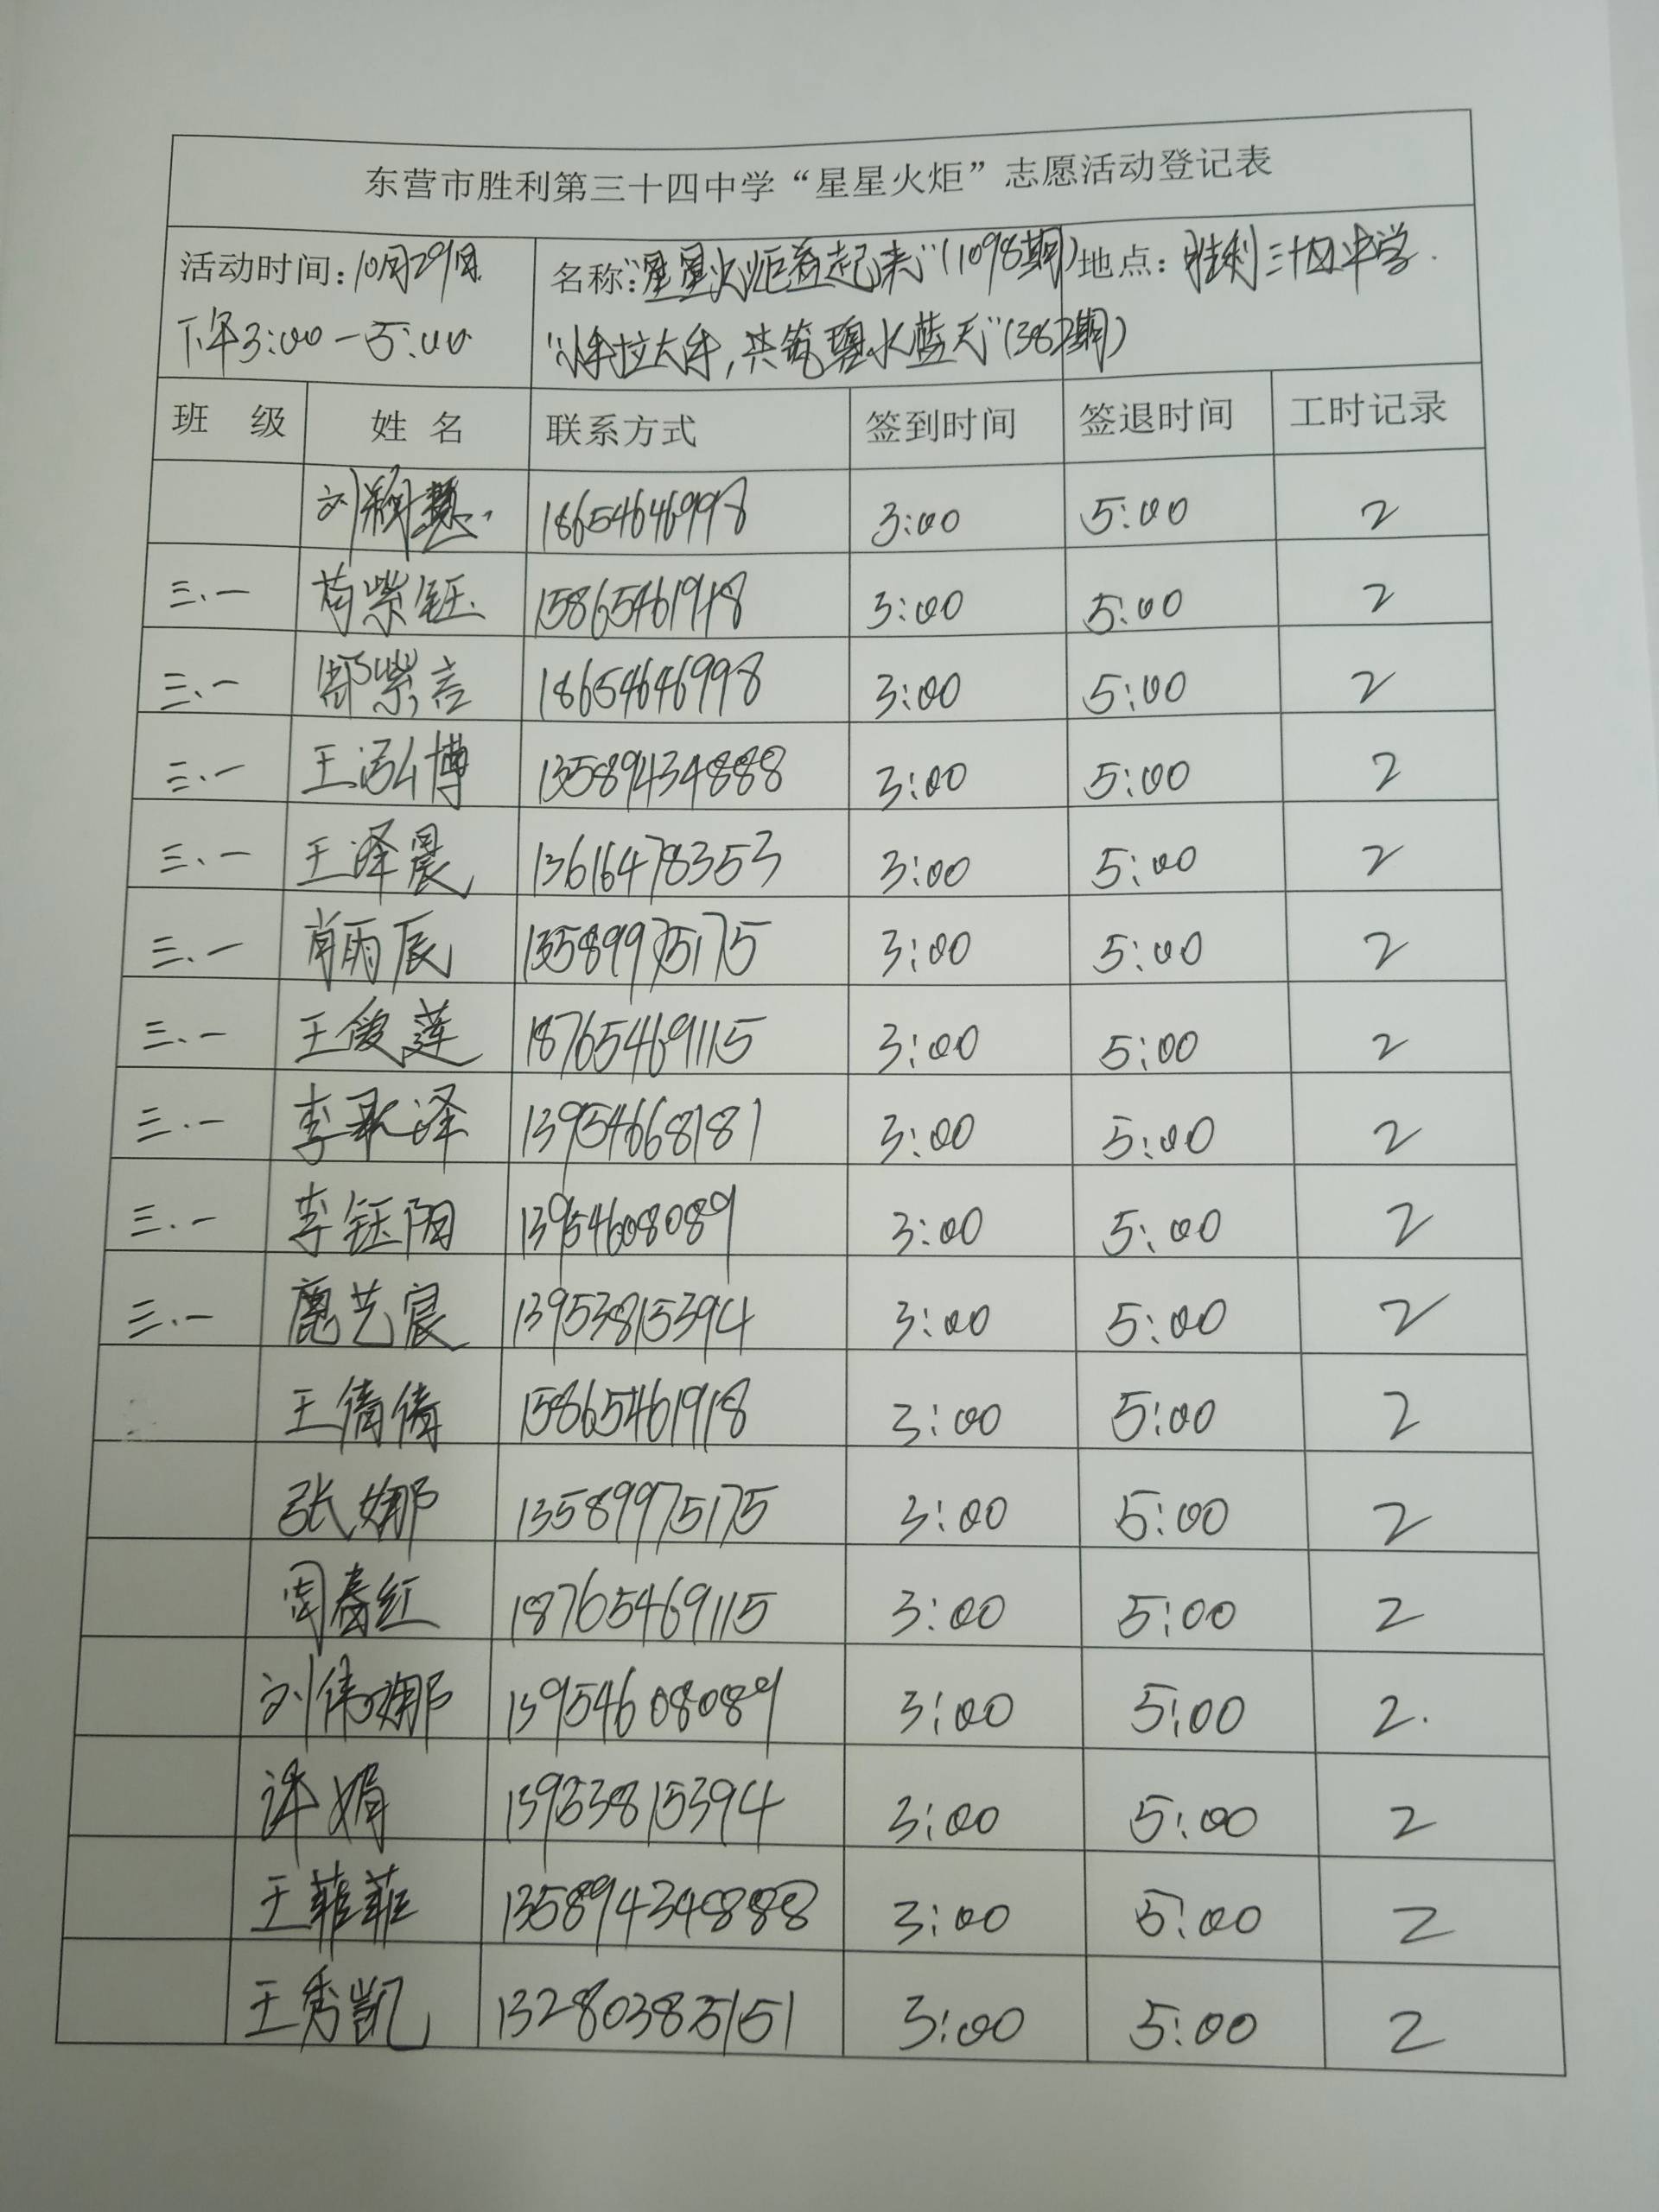 东营市胜利第三十四中学“星星火炬”志愿活动登记表
活动时间：10月29日 名称：“星星火炬着起来”（1098期） 地点：胜利三十四中学
下午3:00-5:00 “小手拉大手，共筑碧水蓝天”（362期）
班 级 姓 名 联系方式 签到时间 签退时间 工时记录
刘翱慧 18654646998 3:00 5:00 2
三.一 苟紫钰 15865461918 3:00 5:00 2
三.一 紫言 18654646998 3:00 5:00 2
三.一 王泓博 13589434888 3:00 5:00 2
三.一 王泽晨 13616478353 3:00 5:00 2
三.一 肖雨辰 13589975175 3:00 5:00 2
三.一 王俊莲 18765469115 3:00 5:00 2
三.一 李承泽 13954668181 3:00 5:00 2
三.一 李钰阳 13954608089 3:00 5:00 2
三.一 鹿艺宸 13953815394 3:00 5:00 2
王倩倩 15865461918 3:00 5:00 2
张娜 13589975175 3:00 5:00 2
周春红 18765469115 3:00 5:00 2
刘伟娜 13954608089 3:00 5:00 2.
许娟 13953815394 3:00 5:00 2
王菲菲 13589434888 3:00 5:00 2
王秀凯 13280385151 3:00 5:00 2